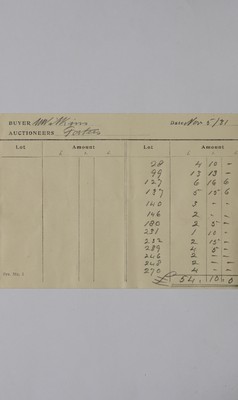 BUYER W Watkins Date Nov 5/31
AUCTIONEERS Fosters
Lot Amount Lot Amount
£ s d £ s d
98 4 10 -
99 13 13 -
127 6 16 6
137 5 15 6
140 3 - -
146 2 - -
180 2 5 -
231 1 10 -
232 2 15 -
239 4 5 -
246 2 - -
248 2 - -
270 4 - -
£ 54. 10. 0